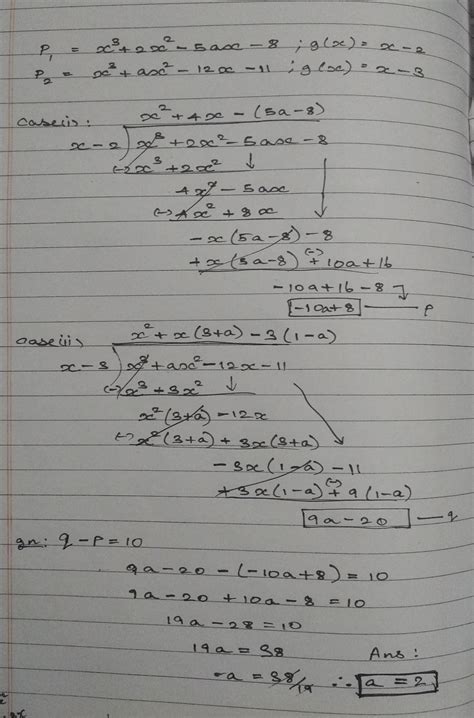 P₁ = x³ + 2x² - 5ax - 8 ; g(x) = x - 2
P₂ = x³ + ax² - 12x - 11 ; g(x) = x - 3
case(i): x² + 4x - (5a - 8)
x - 2 ) x³ + 2x² - 5ax - 8
(-) x³ + 2x² ↓
4x² - 5ax
(-) 4x² + 8x
- x(5a - 8) - 8
+ x(5a - 8) (-)+ 10a + 16
- 10a + 16 - 8
-10a + 8 — P
case(ii) x² + x(3 + a) - 3(1 - a)
x - 3 ) x³ + ax² - 12x - 11
(-) x³ + 3x² ↓
x²(3 + a) - 12x
(-) x²(3 + a) + 3x(3 + a)
- 3x(1 - a) - 11
+ 3x(1 - a) (-)+ 9(1 - a)
9a - 20 — q
gn: q - P = 10
9a - 20 - (-10a + 8) = 10
9a - 20 + 10a - 8 = 10
19a - 28 = 10
19a = 38
Ans :
a = 38/19 ∴ a = 2